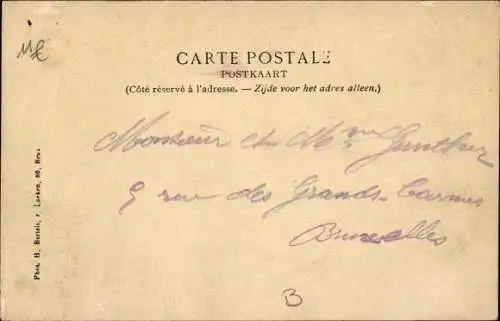 CARTE POSTALE
POSTKAART
(Côté réservé à l'adresse. — Zijde voor het adres alleen.)
Monsieur et Mme Gunther
9 rue des Grands-Carmes
Bruxelles
B
Phot. H. Bertels, r. Laeken, 80, Brux